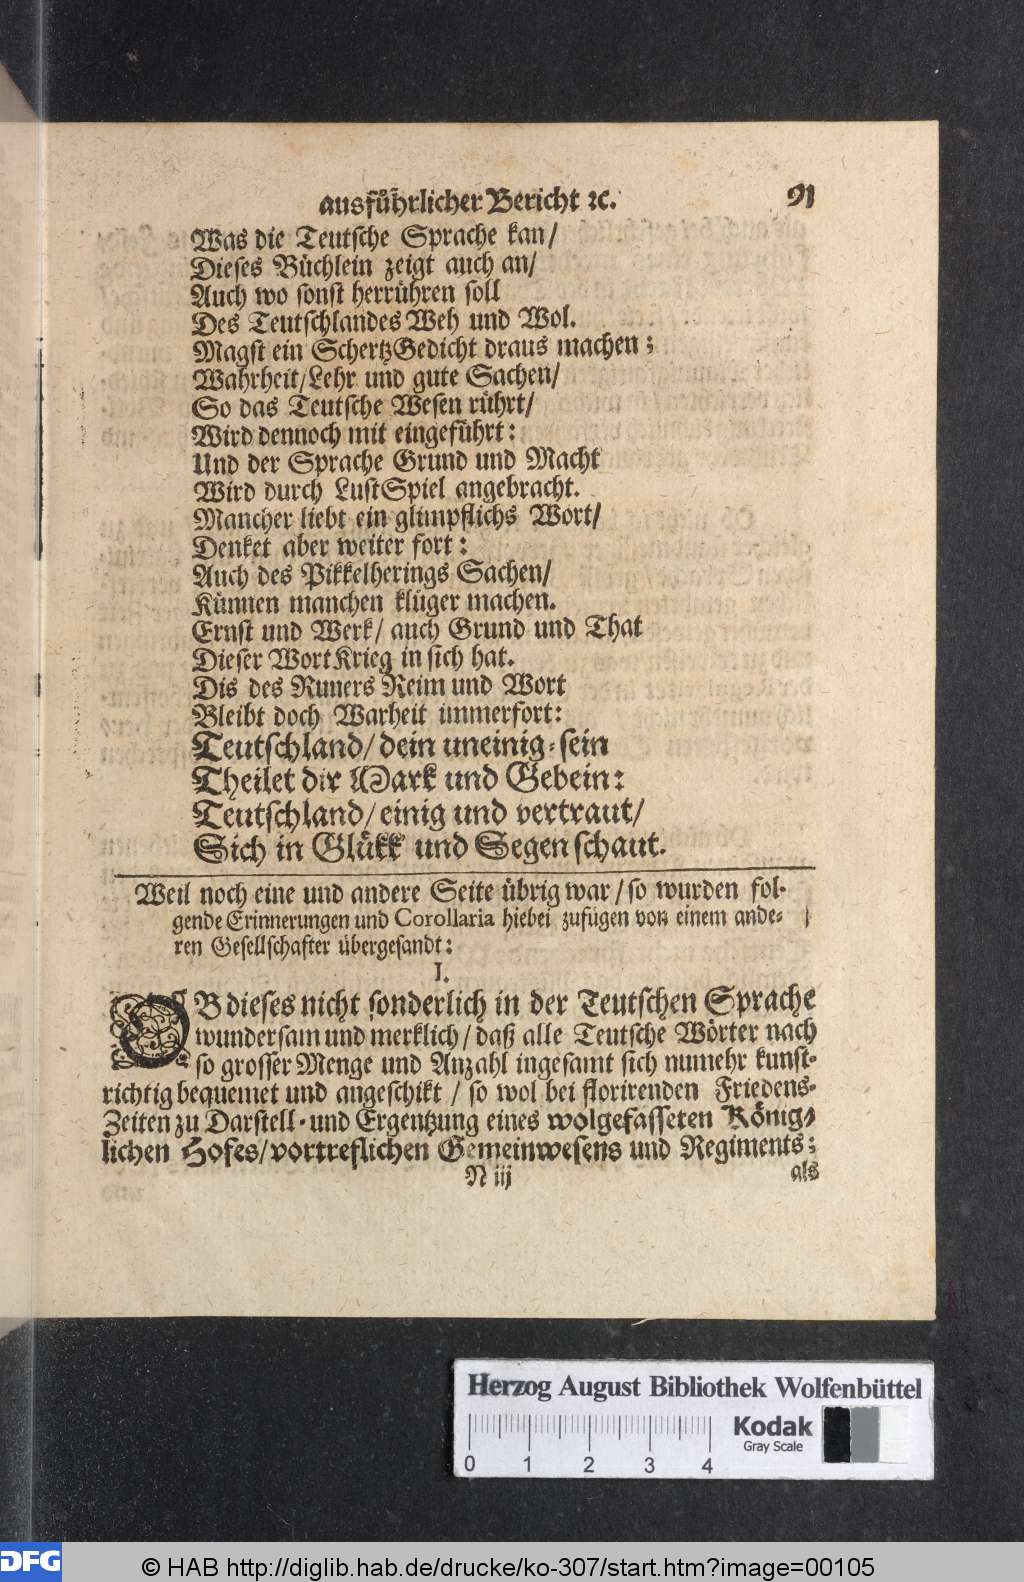 ausführlicher Bericht ꝛc. 91
Was die Teutsche Sprache kan/
Dieses Büchlein zeigt auch an/
Auch wo sonst herrühren soll
Des Teutschlandes Weh und Wol.
Magst ein SchertzGedicht draus machen;
Wahrheit/Lehr und gute Sachen/
So das Teutsche Wesen rührt/
Wird dennoch mit eingeführt:
Und der Sprache Grund und Macht
Wird durch LustSpiel angebracht.
Mancher liebt ein glimpflichs Wort/
Denket aber weiter fort:
Auch des Pikkelherings Sachen/
Künnen manchen klüger machen.
Ernst und Werk/ auch Grund und That
Dieser WortKrieg in sich hat.
Dis des Runers Reim und Wort
Bleibt doch Warheit immerfort:
Teutschland/ dein uneinig-sein
Theilet dir Mark und Gebein:
Teutschland/ einig und vertraut/
Sich in Glükk und Segen schaut.
Weil noch eine und andere Seite übrig war/ so wurden fol-
gende Erinnerungen und Corollaria hiebei zufügen von einem ande-
ren Gesellschafter übergesandt:
I.
OB dieses nicht sonderlich in der Teutschen Sprache
wundersam und merklich/ daß alle Teutsche Wörter nach
so grosser Menge und Anzahl ingesamt sich numehr kunst-
richtig bequemet und angeschikt / so wol bei florirenden Friedens-
Zeiten zu Darstell- und Ergentzung eines wolgefasseten König-
lichen Hofes/vortreflichen Gemeinwesens und Regiments;
N iij als
Herzog August Bibliothek Wolfenbüttel
Kodak
Gray Scale
0 1 2 3 4
DFG © HAB http://diglib.hab.de/drucke/ko-307/start.htm?image=00105